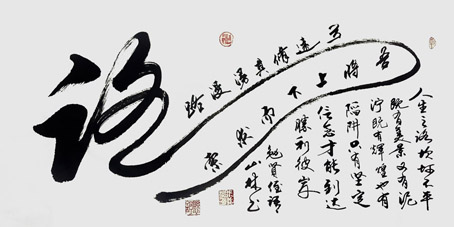 路
路漫漫其修遠兮
吾將上下而求索
人生之路坎坷不平
既有美景又有泥
泞既有輝煌也有
陷阱只有坚定
信念才能到达
勝利彼岸